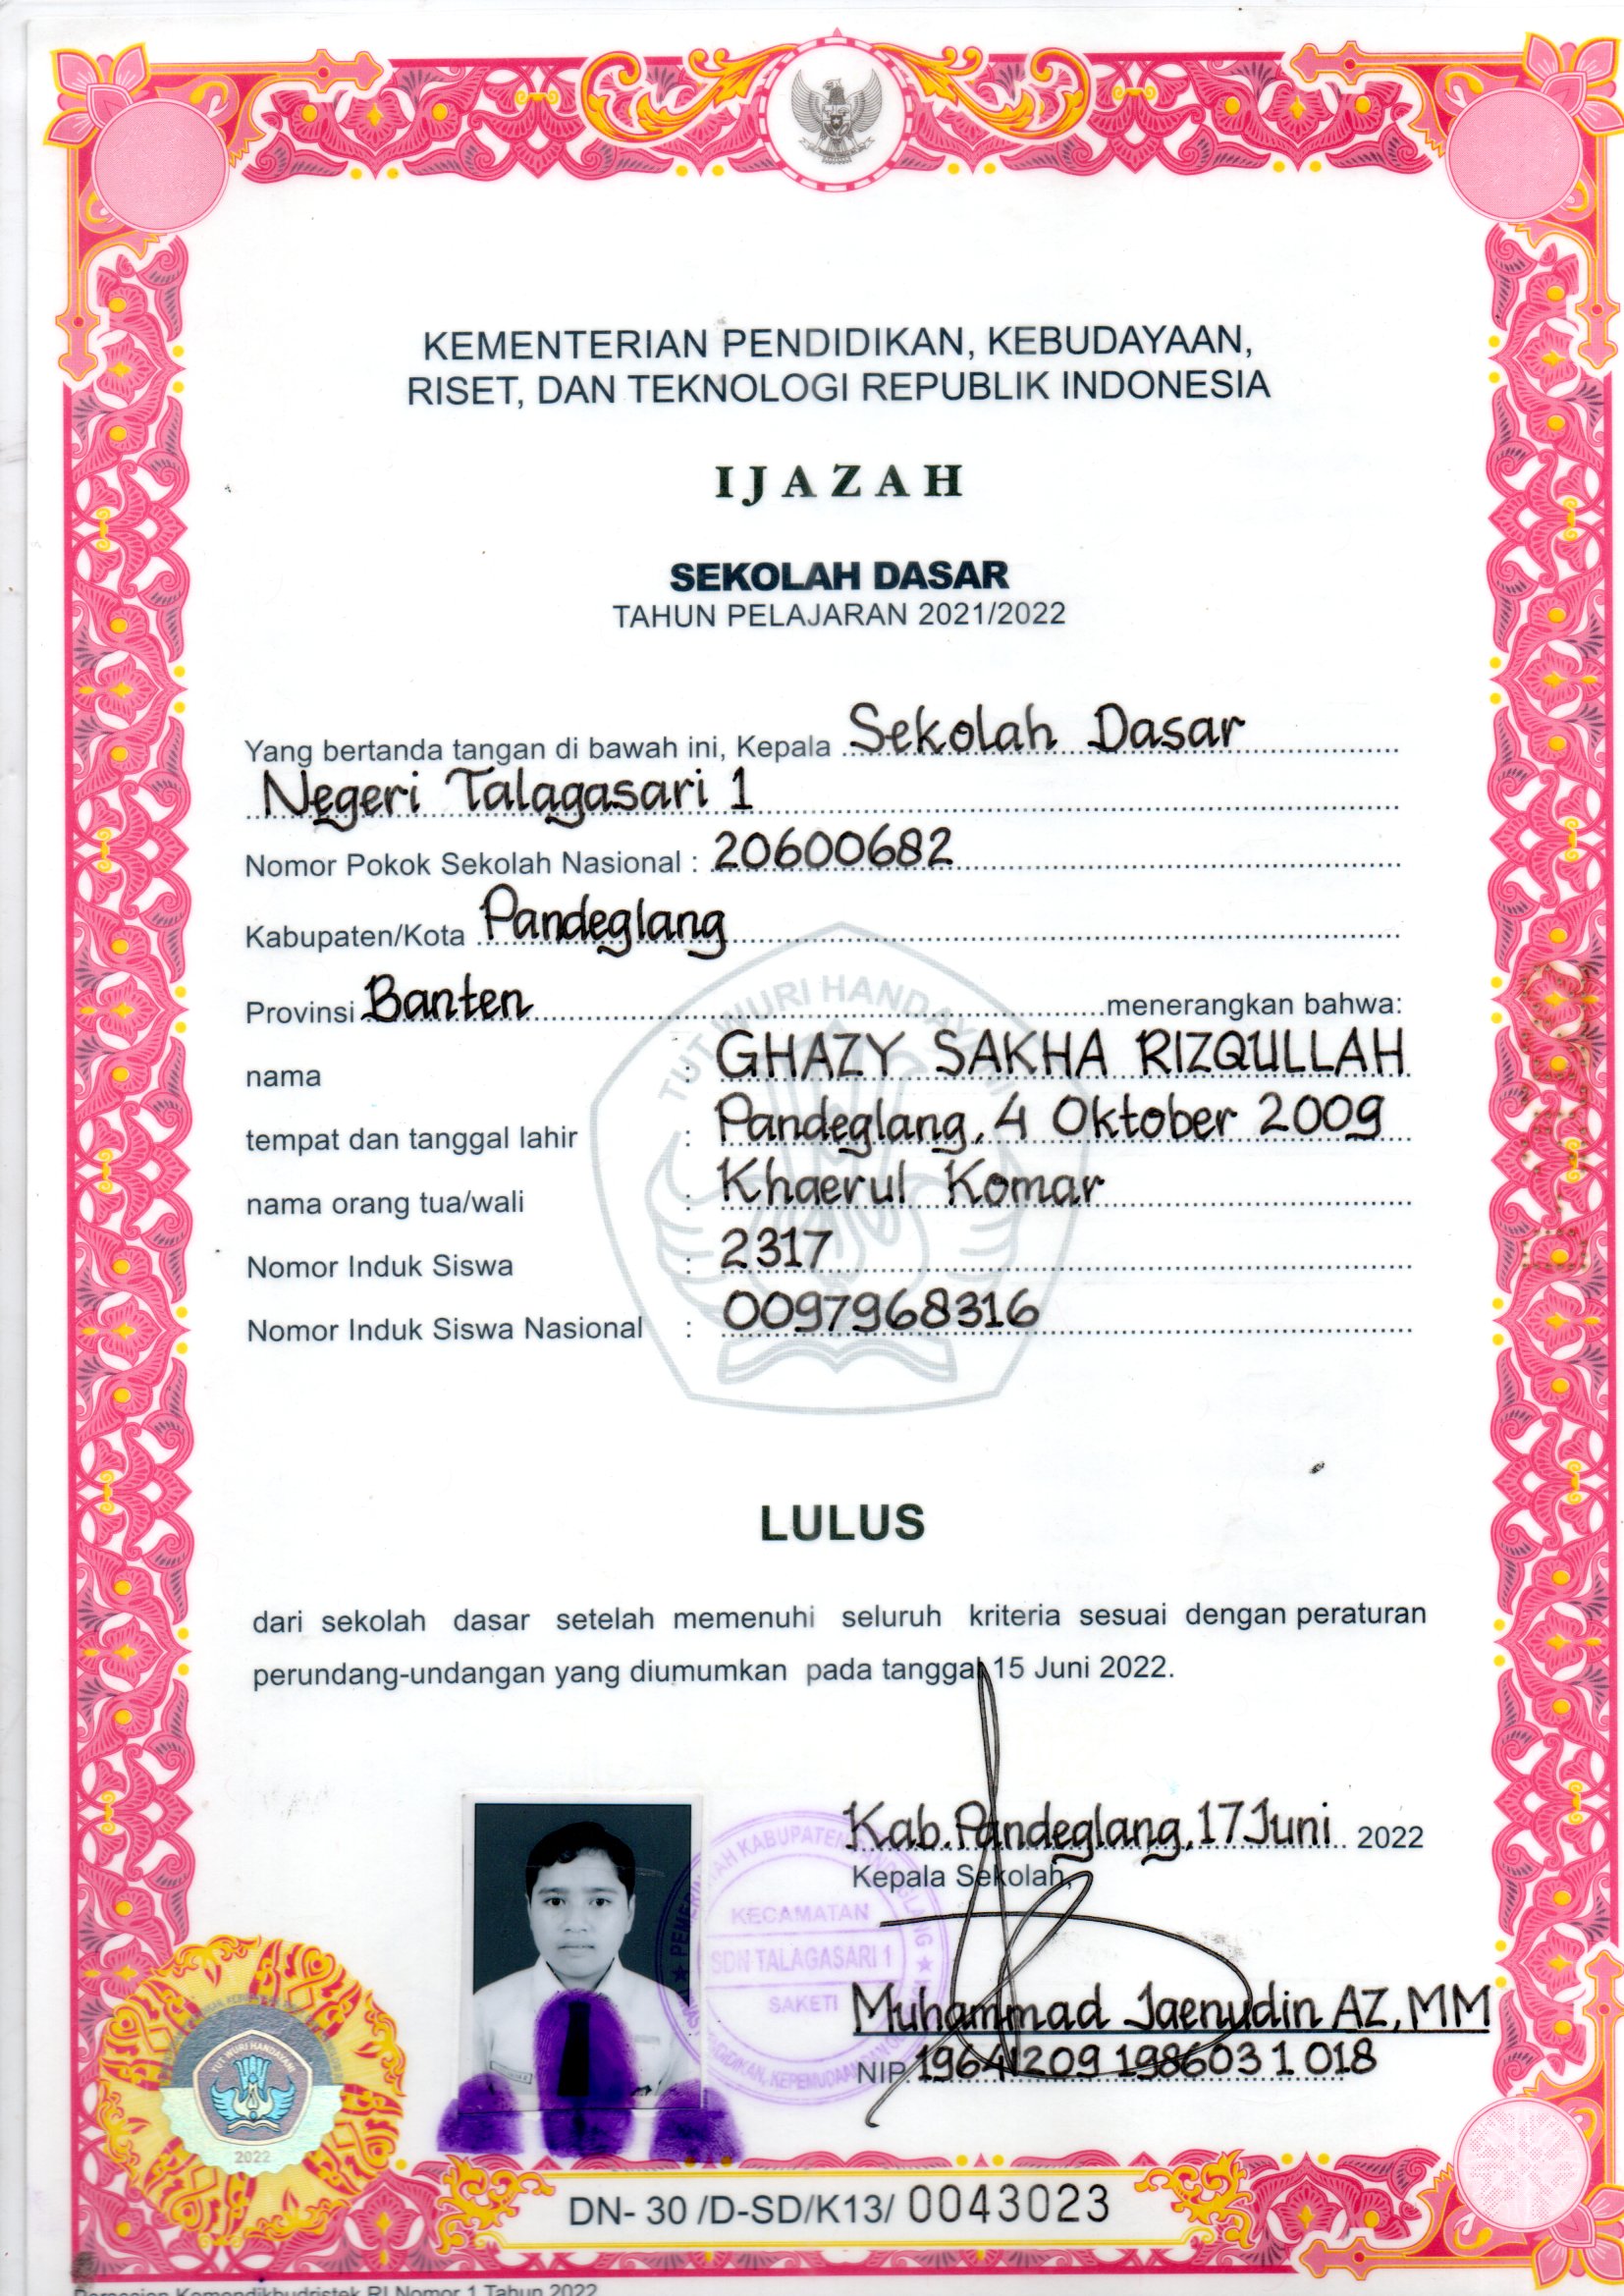 KEMENTERIAN PENDIDIKAN, KEBUDAYAAN,
RISET, DAN TEKNOLOGI REPUBLIK INDONESIA
IJAZAH
SEKOLAH DASAR
TAHUN PELAJARAN 2021/2022
Yang bertanda tangan di bawah ini, Kepala Sekolah Dasar
Negeri Talagasari 1
Nomor Pokok Sekolah Nasional : 20600682
Kabupaten/Kota Pandeglang
Provinsi Banten menerangkan bahwa:
TUT WURI HANDAYANI
nama : GHAZY SAKHA RIZQULLAH
tempat dan tanggal lahir : Pandeglang, 4 Oktober 2009
nama orang tua/wali : Khaerul Komar
Nomor Induk Siswa : 2317
Nomor Induk Siswa Nasional : 0097968316
LULUS
dari sekolah dasar setelah memenuhi seluruh kriteria sesuai dengan peraturan
perundang-undangan yang diumumkan pada tanggal 15 Juni 2022.
Kab. Pandeglang, 17 Juni 2022
Kepala Sekolah,
KECAMATAN
SDN TALAGASARI 1
SAKETI
Muhammad Jaenudin AZ, MM
NIP. 19641209 198603 1 018
TUT WURI HANDAYANI
2022
DN- 30 /D-SD/K13/ 0043023
Persesjen Kemendikbudristek RI Nomor 1 Tahun 2022